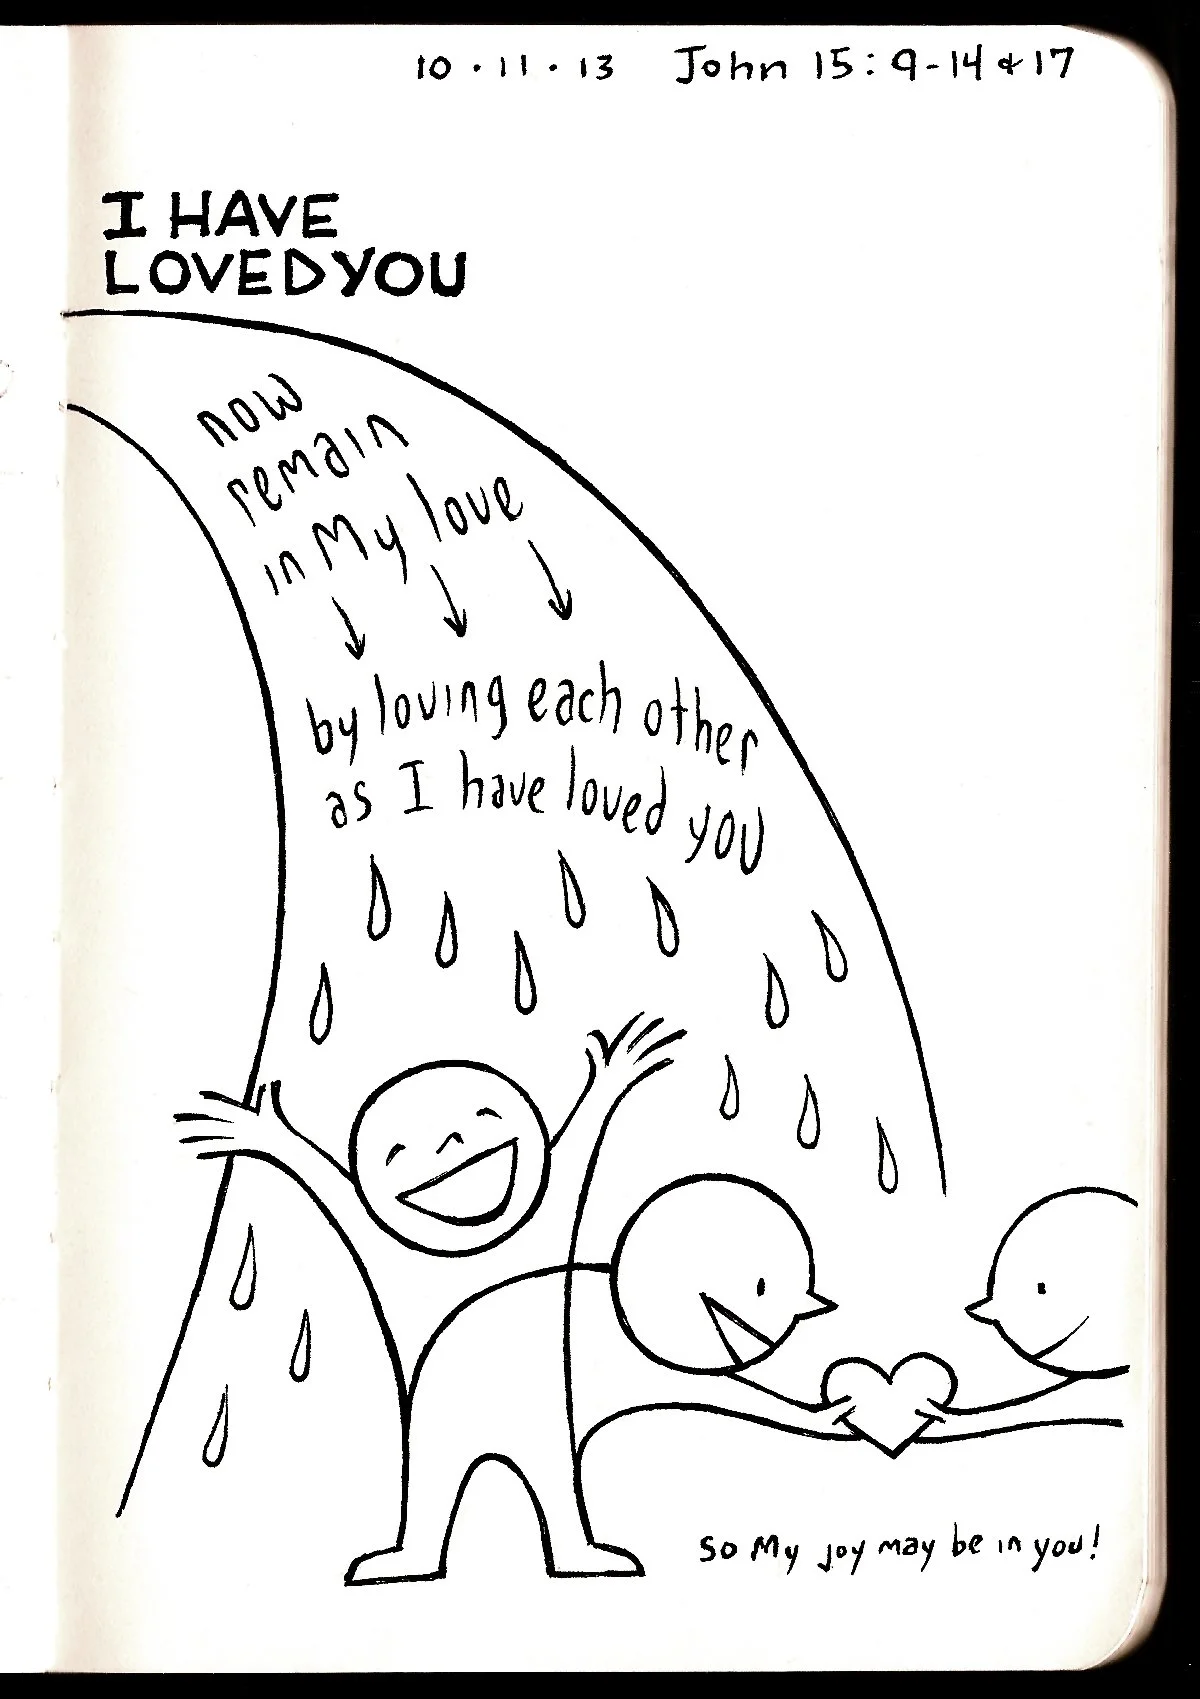 10 · 11 · 13 John 15:9-14 & 17
I HAVE
LOVED YOU
now
remain
in My love
by loving each other
as I have loved you
so My joy may be in you!